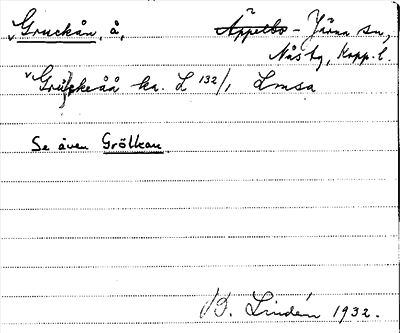 Gruckån, å, Äppelbo - Järna sn,
Nås tg, Kopp. l.
Gruckeåå ka. L 132/1 Lmsa
Se även Grölkan
B. Lindén 1932.